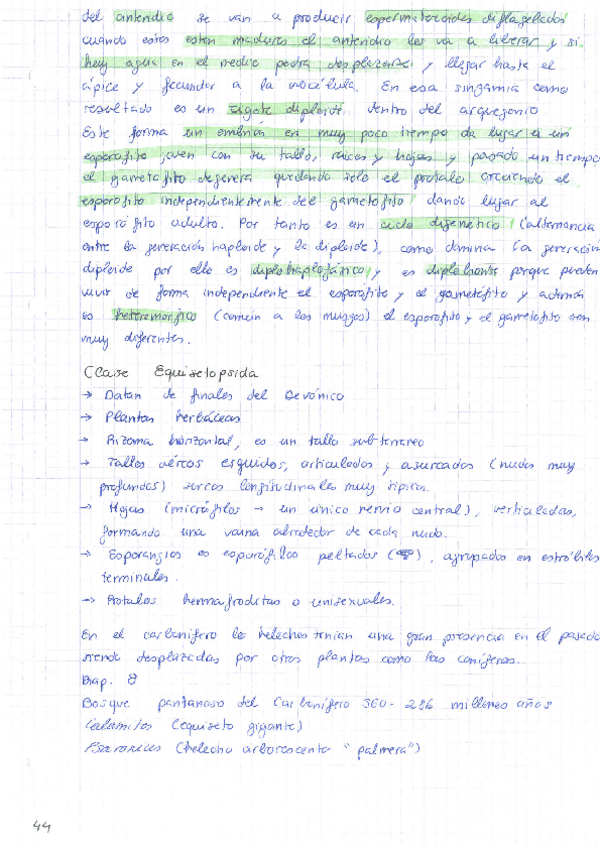 del anteridio se van a producir espermatozoides diflagelados
cuando estos esten maduros el anteridio les va a liberar y si
hay agua en el medio podrá desplazarse y llegar hasta el
ápice y fecundar a la ovocélula. En esa singamia como
resultado es un zigote diploide dentro del arquegonio
Este forma un embrión en muy poco tiempo da lugar a un
esporofito joven con su tallo, raices y hojas y pasado un tiempo
el gametofito degenera quedando solo el protalo creciendo el
esporofito independientemente del gametofito dando lugar al
esporófito adulto. Por tanto es un ciclo digenético (alternancia
entre la generación haploide y la diploide), como domina la generación
diploide por ello es diplohaplofásico y es diplobionte porque pueden
vivir de forma independiente el esporofito y el gametófito y además
es heteromórfico (común a los musgos) el esporofito y el gametofito son
muy diferentes.
Clase Equisetopsida
→ Datan de finales del Devónico
→ Plantas herbáceas
→ Rizoma horizontal, es un tallo subterráneo
→ Tallos aéreos erguidos, articulados y asurcados (nudos muy
profundos) surcos longitudinales muy típicos.
→ Hojas (micrófilos → un único nervio central), verticiladas,
formando una vaina alrededor de cada nudo.
→ Esporangios es esporófilos peltados ( ), agrupados en estróbilos
terminales.
→ Protalos hermafroditas o unisexuales.
En el carbonífero los helechos tenían una gran presencia en el pasado
siendo desplazadas por otras plantas como las coníferas.
Diap. 8
Bosque pantanoso del Carbonífero 360-286 millones años
Calamites (equiseto gigante)
Psaronius (helecho arborescente "palmera")
44